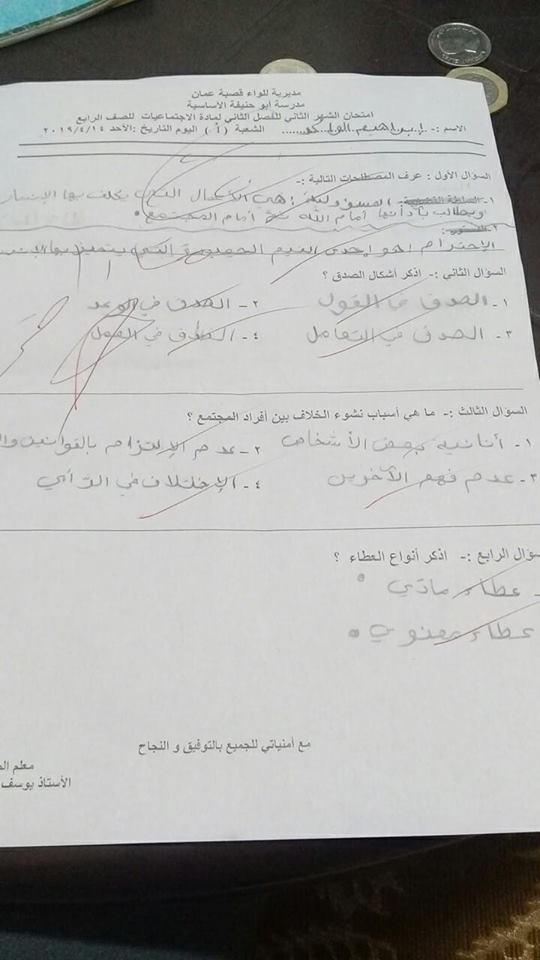 مديرية للواء قصبة عمان
مدرسة ابو حنيفة الأساسية
امتحان الشهر الثاني للفصل الثاني لمادة الاجتماعيات للصف الرابع
الاسم :- ابراهيم ...... الشعبة (أ) اليوم التاريخ :الأحد ٢٠١٩/٤/١٤
السؤال الأول : عرف المصطلحات التالية :-
١- المسؤولية : هي الأعمال التي يكلف بها
ويطالب بأدائها أمام الله ثم أمام المجتمع .
الإحترام : هو إحدى القيم الحميدة التي يتميز بها
السؤال الثاني :- اذكر أشكال الصدق ؟
١- الصدق في القول ٢- الصدق في الوعد
٣- الصدق في التعامل ٤- الصدق في القول
السؤال الثالث :- ما هي أسباب نشوء الخلاف بين أفراد المجتمع ؟
١- أنانية بعض الأشخاص ٢- عدم الإلتزام بالقوانين
٣- عدم فهم الآخرين ٤- الإختلاف في الرأي
سؤال الرابع :- اذكر أنواع العطاء ؟
- عطاء مادي .
عطاء معنوي .
مع أمنياتي للجميع بالتوفيق و النجاح
معلم
الأستاذ يوسف